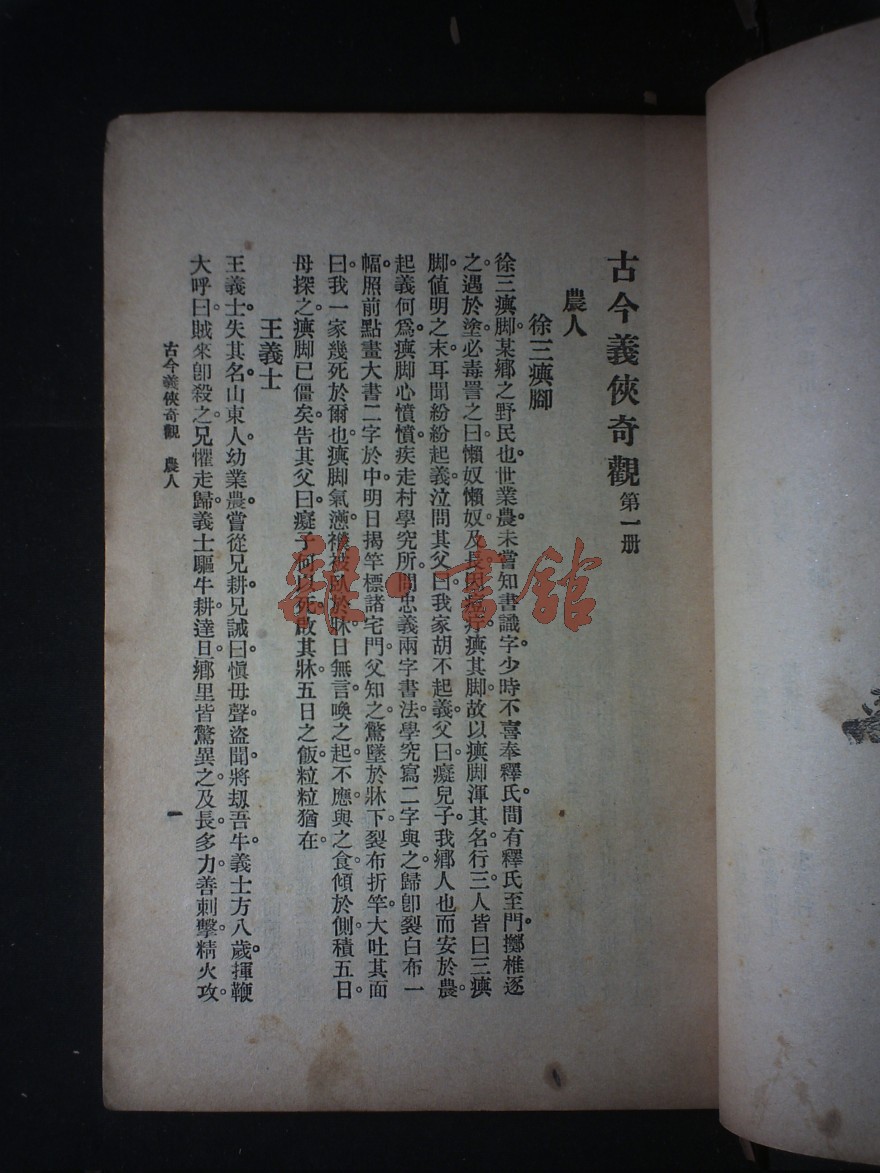 古今義俠奇觀第一册
農人
徐三瘨腳
徐三瘨脚某鄉之野民也世業農未嘗知書識字少時不喜奉釋氏間有釋氏至門擲椎逐
之遇於塗必毒詈之曰懶奴懶奴及長因瘨其脚故以瘨脚渾其名行三人皆曰三瘨
脚値明之末耳聞紛紛起義泣問其父曰我家胡不起義父曰癡兒子我鄉人也而安於農
起義何爲瘨脚心憤憤疾走村學究所問忠義兩字書法學究寫二字與之歸卽裂白布一
幅照前點畫大書二字於中明日揭竿標諸宅門父知之驚墜於牀下裂布折竿大吐其面
曰我一家幾死於爾也瘨脚氣懣襆被臥於牀日無言喚之起不應與之食傾於側積五日
母探之瘨脚已僵矣告其父曰癡子何以死啟其牀五日之飯粒粒猶在
王義士
王義士失其名山東人幼業農嘗從兄耕兄誡曰愼毋聲盜聞將刼吾牛義士方八歲揮鞭
大呼曰賊來卽殺之兄懼走歸義士驅牛耕達旦鄉里皆驚異之及長多力善刺擊精火攻
古今義俠奇觀 農人
一
雜·書館